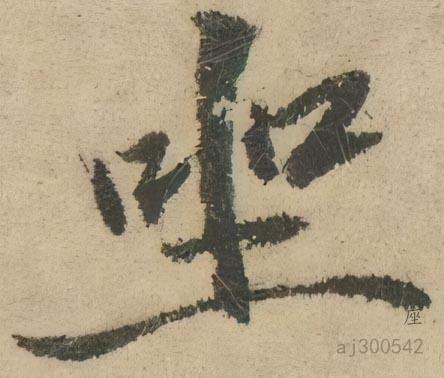 坐
座
aj300542